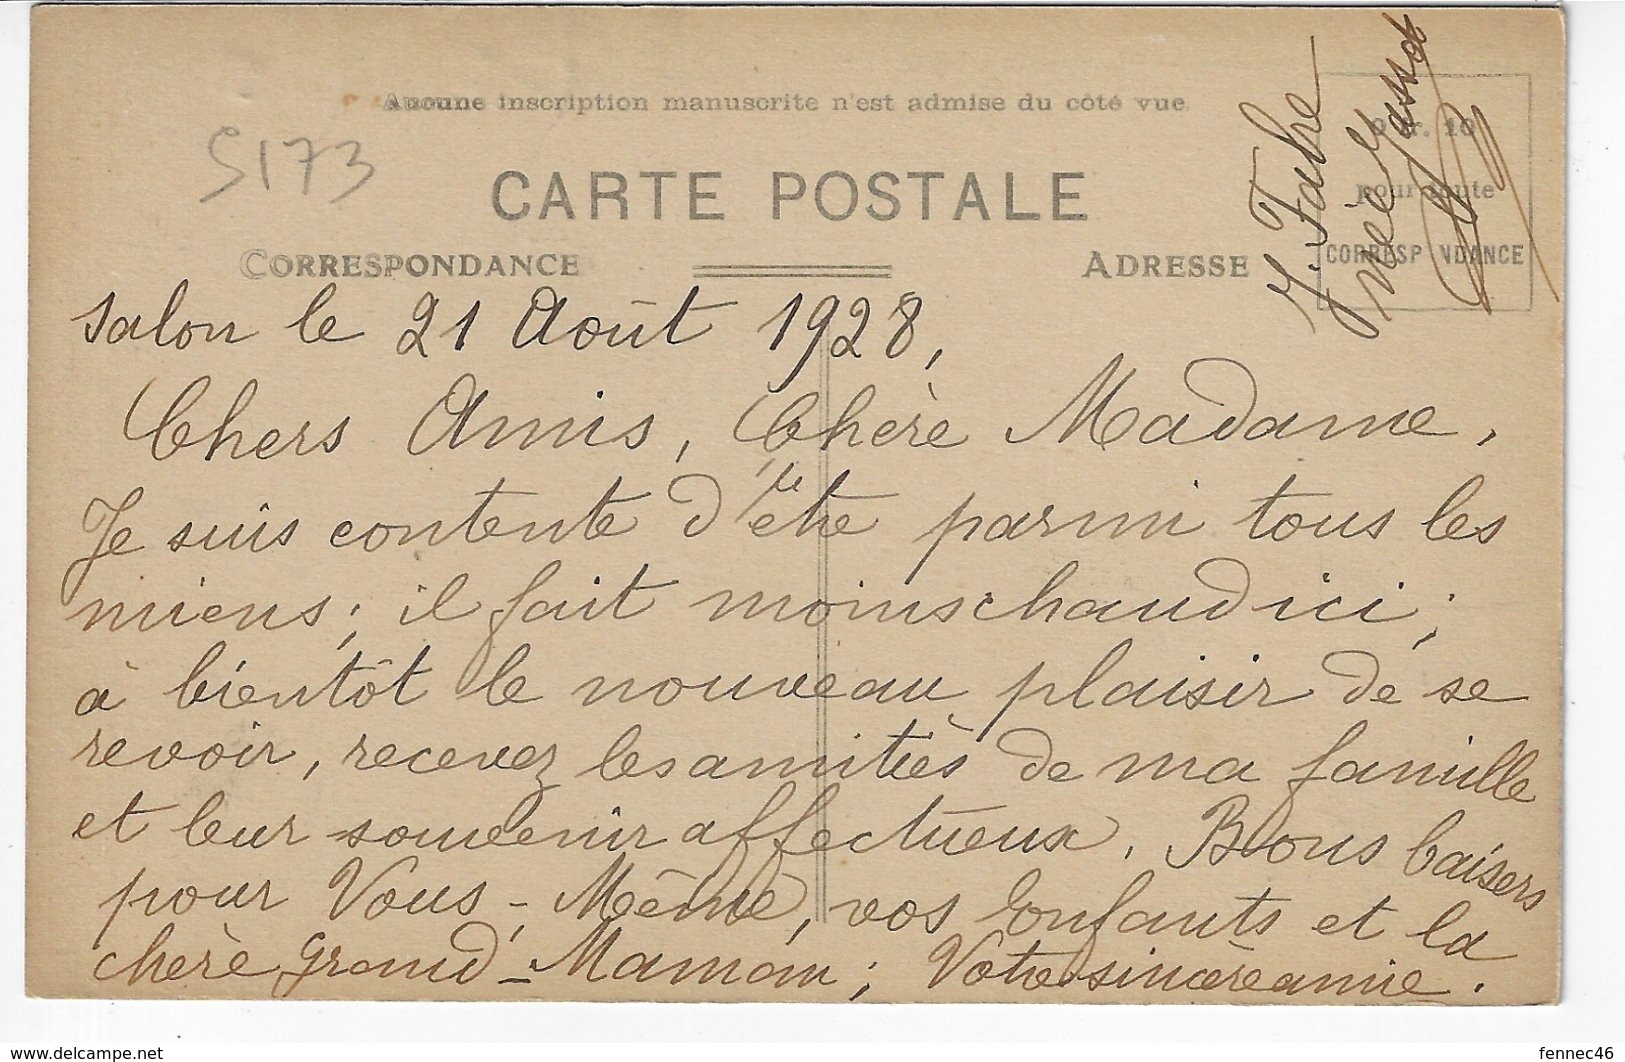 Aucune inscription manuscrite n'est admise du côté vue.
5173
CARTE POSTALE
CORRESPONDANCE
ADRESSE
pour toute
CORRESPONDANCE
J. Fabre
née Jassot
Salon le 21 Août 1928,
Chers Amis, Chère Madame,
Je suis contente d'être parmi tous les
miens; il fait moins chaud ici;
à bientôt le nouveau plaisir de se
revoir, recevez les amitiés de ma famille
et leur souvenir affectueux. Bons baisers
pour Vous-Même, vos Enfants et la
chère Grand-Maman; Votre sincère amie.
fennec46
www.delcampe.net